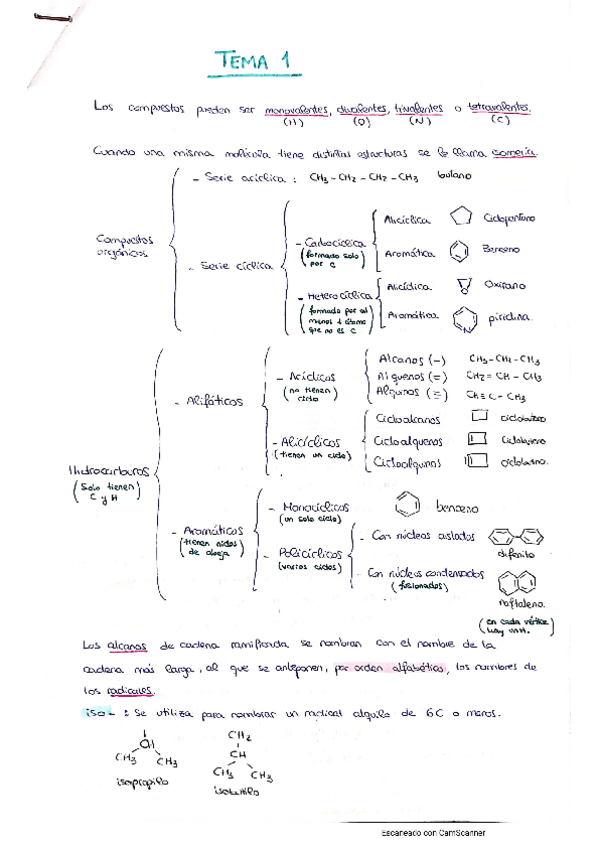 TEMA 1
Los compuestos pueden ser monovalentes, divalentes, trivalentes o tetravalentes.
(H) (O) (N) (C)
Cuando una misma molécula tiene distintas estructuras se le llama isomería.
Compuestos orgánicos
- Serie acíclica : CH3 - CH2 - CH2 - CH3 butano
- Serie cíclica
- Carbocíclica
(formado solo por C)
Alicíclica Ciclopentano
Aromática Benceno
- Heterocíclica
(formado por al menos 1 átomo que no es C)
Alicíclica Oxirano
Aromática N piridina.
Hidrocarburos
(Solo tienen C y H)
- Alifáticos
- Acíclicos
(no tienen ciclo)
Alcanos (-) CH3 - CH2 - CH3
Alquenos (=) CH2 = CH - CH3
Alquinos (≡) CH ≡ C - CH3
- Alicíclicos
(tienen un ciclo)
Cicloalcanos
Cicloalquenos
Cicloalquinos
- Aromáticos
- Monocíclicos benceno
(un solo ciclo)
- Policíclicos
(varios ciclos)
- Con núcleos aislados
difenilo
- Con núcleos condensados
(fusionados)
naftaleno.
(en cada vértice hay un H.)
Los alcanos de cadena ramificada se nombran con el nombre de la
cadena más larga, al que se anteponen, por orden alfabético, los nombres de
los radicales.
iso- : Se utiliza para nombrar un radical alquilo de 6C o menos.
CH3 CH3
isopropilo
CH2
CH
CH3 CH3
isobutilo
Escaneado con CamScanner